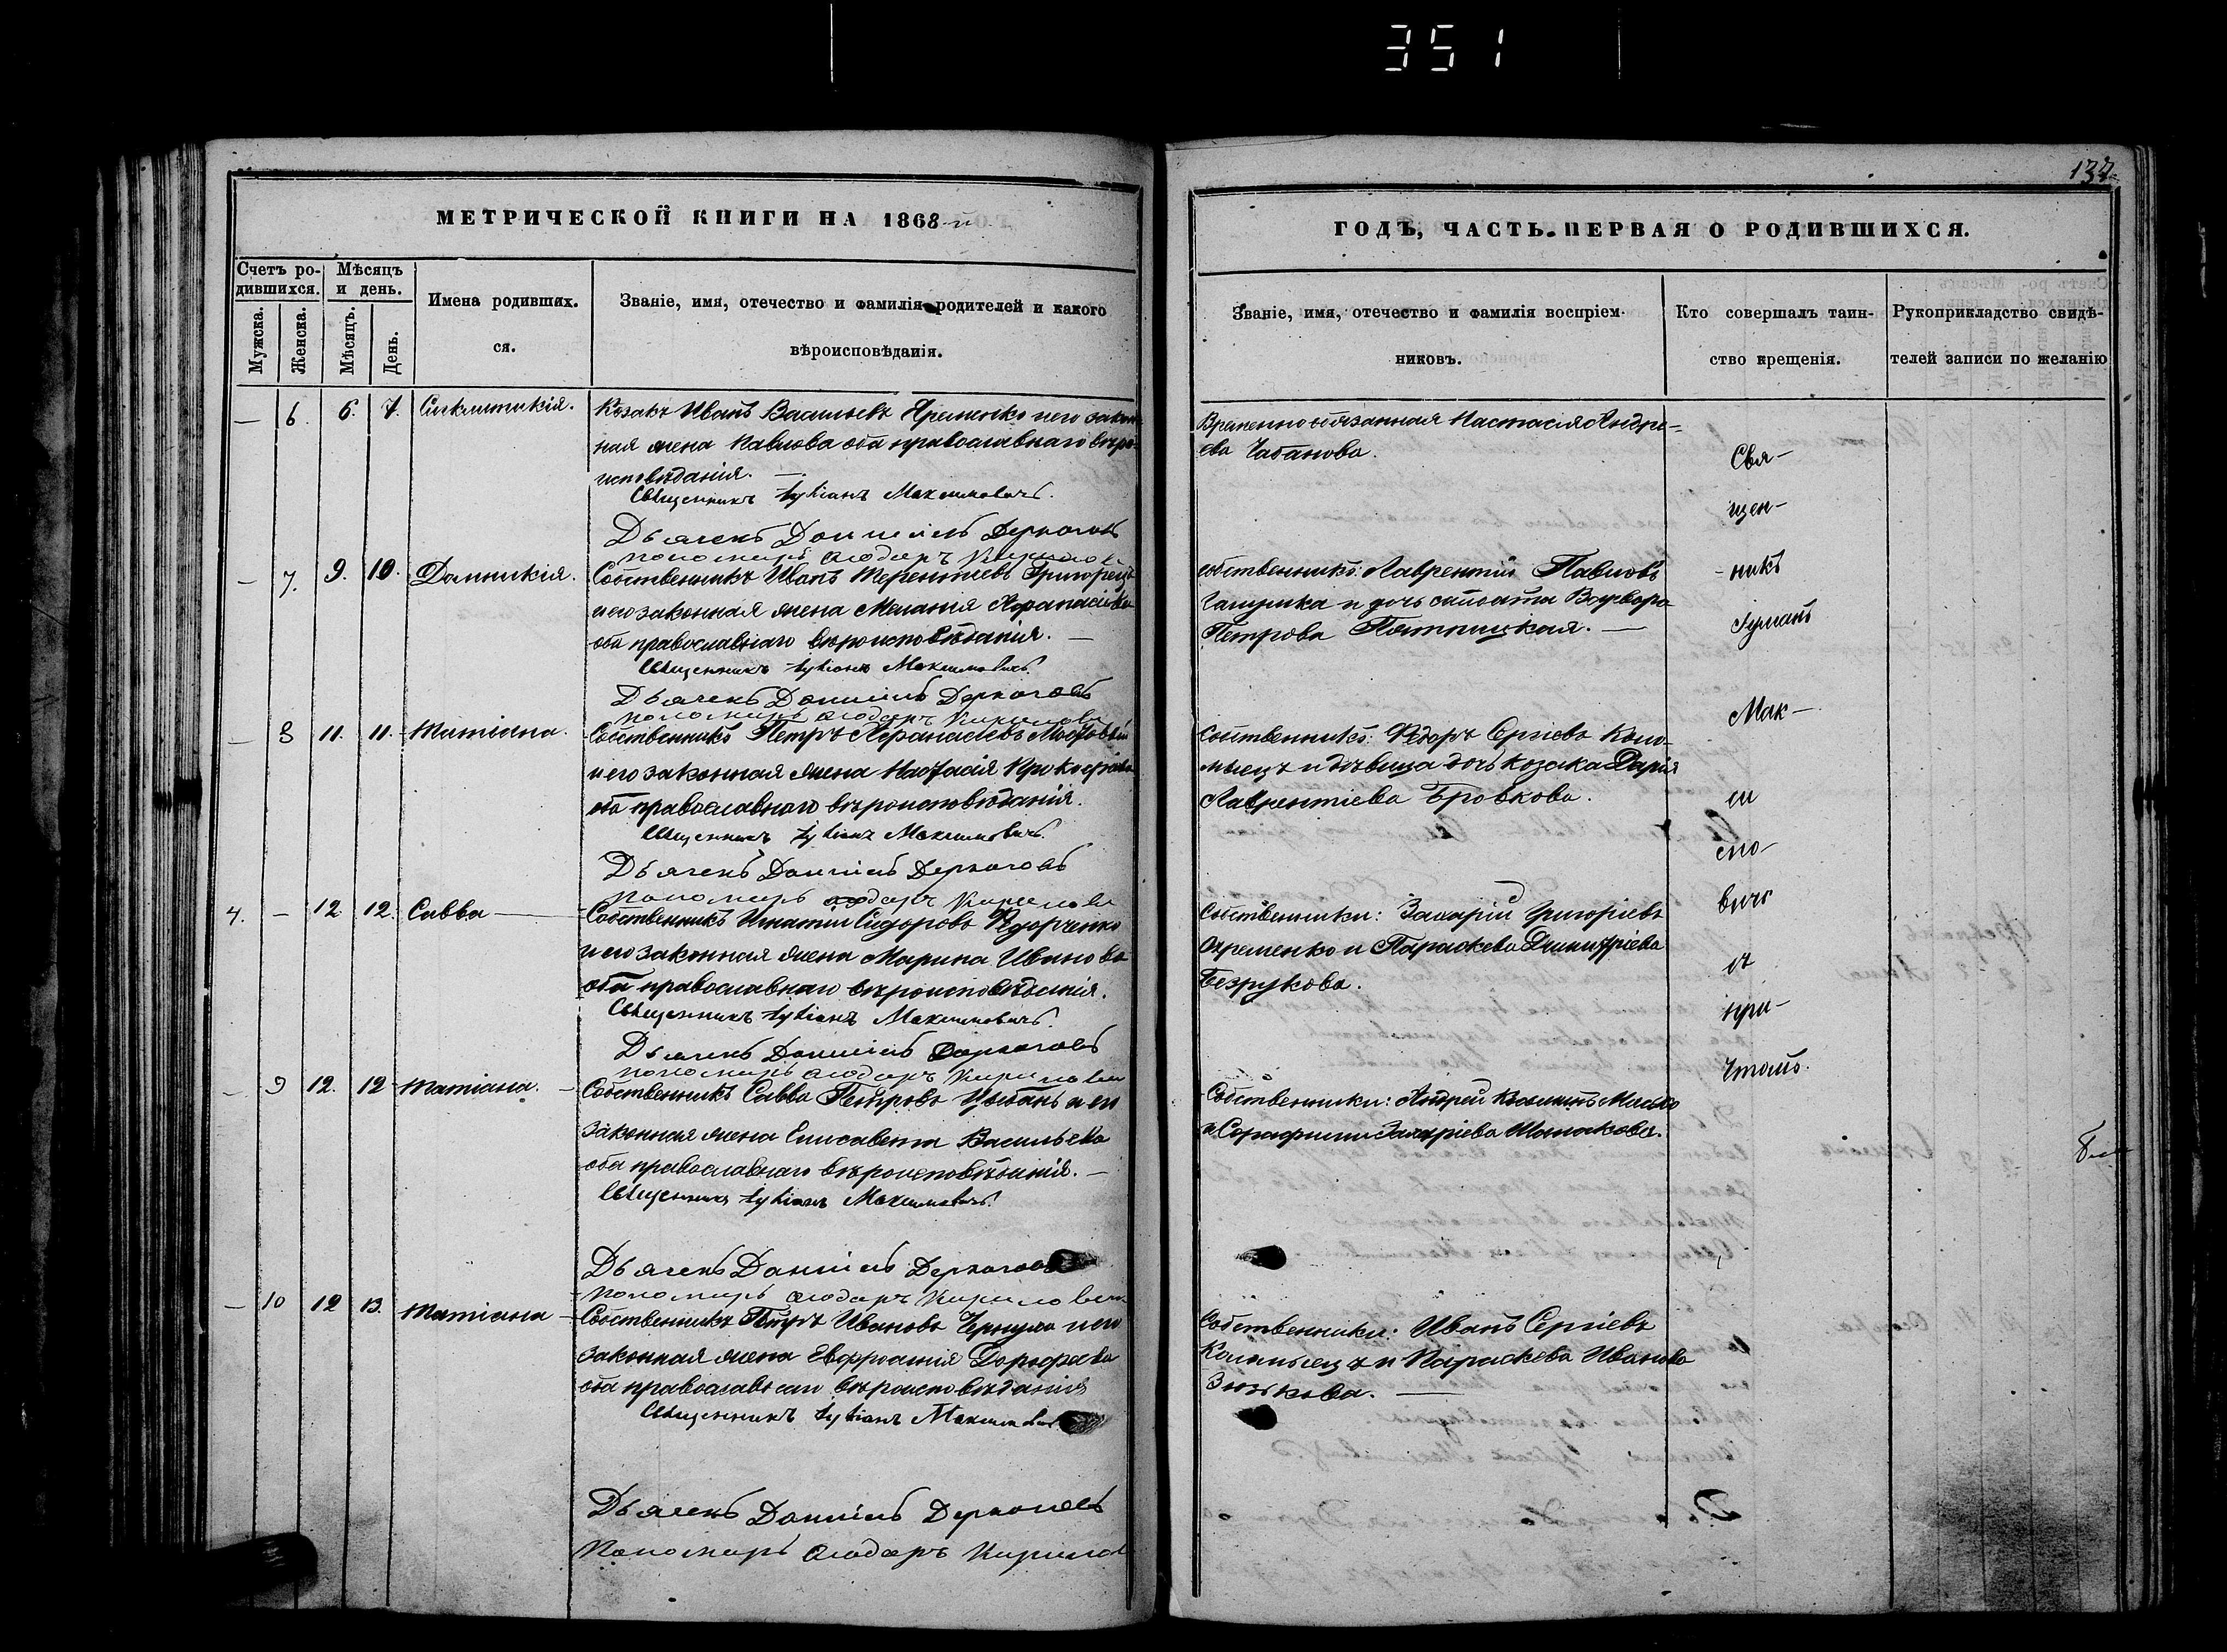 351
132
МЕТРИЧЕСКОЙ КНИГИ НА 1868 й
Счетъ ро-
дившихся.
Мѣсяцъ
и день.
Мужска.
Женска.
Мѣсяцъ.
День.
Имена родивших.
ся.
Званіе, имя, отечество и фамилія родителей и какого
вѣроисповѣданія.
— 6. 6. 7. Синклитикія.
Козакъ Иванъ Васильевъ Яременко и его закон-
ная жена Павлова оба православнаго вѣро-
исповѣданія. —
Священникъ Іуліанъ Максимовичъ.
Дьячекъ Даніилъ Деркачовъ
Пономарь Ѳеодоръ
— 7. 9. 10. Домникія.
Собственникъ Иванъ Терентіевъ Григорецъ
и его законная жена Меланія Аѳанасіева
оба православнаго вѣроисповѣданія. —
Священникъ Іуліанъ Максимовичъ.
Дьячекъ Даніилъ Деркачовъ
Пономарь Ѳеодоръ
— 8 11. 11. Татіана.
Собственникъ Петръ Аѳанасіевъ
и его законная жена Настасія Прокофіева
оба православнаго вѣроисповѣданія.
Священникъ Іуліанъ Максимовичъ.
Дьячекъ Даніилъ Деркачовъ
Пономарь Ѳеодоръ
4. — 12 12. Савва —
Собственникъ Игнатій Сидоровъ Ѳедорченко
и его законная жена Марина Иванова
оба православнаго вѣроисповѣданія.
Священникъ Іуліанъ Максимовичъ.
Дьячекъ Даніилъ Деркачовъ
Пономарь Ѳеодоръ
— 9 12. 12 Татіана.
Собственникъ Савва Петровъ Цыбань и его
законная жена Елисавета Васильева
оба православнаго вѣроисповѣданія. —
Священникъ Іуліанъ Максимовичъ.
Дьячекъ Даніилъ Деркачовъ
Пономарь Ѳеодоръ
— 10 12 13. Татіана —
Собственникъ Петръ Ивановъ и его
законная жена Евфросинія Дорофеева
оба православнаго вѣроисповѣданія
Священникъ Іуліанъ Максимовичъ
Дьячекъ Даніилъ Деркачовъ
Пономарь Ѳеодоръ
ГОДЪ, ЧАСТЬ ПЕРВАЯ О РОДИВШИХСЯ.
Званіе, имя, отечество и фамилія воспріем-
никовъ.
Кто совершалъ таин-
ство крещенія.
Рукоприкладство свидѣ-
телей записи по желанію
Временнообязанная Настасія Андре-
ева Чабанова.
собственникъ: Лаврентій Павловъ
и дочь Варвара
Петрова Пятницкая. —
Собственникъ: Ѳедоръ Сергіевъ Коло-
мыецъ и дѣвица дочь козака Дарія
Лаврентіева Бровкова.
Собственники: Захарій Григоріевъ
Охременко и Параскева Димитріева
Безрукова.
Собственники: Андрей
и Серафима Захаріева
Собственники: Иванъ Сергіевъ
Коломыецъ и Параскева Иванова
Зюзькова. —
Свя-
щен-
никъ
Іуліанъ
Мак-
си
мо-
вичъ
съ
при-
чтомъ.